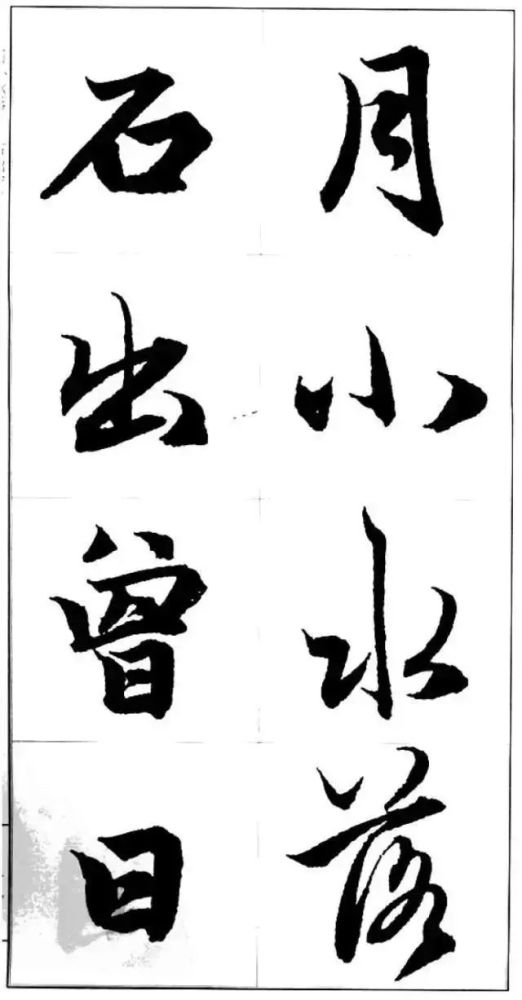 月小水落
石出曾日